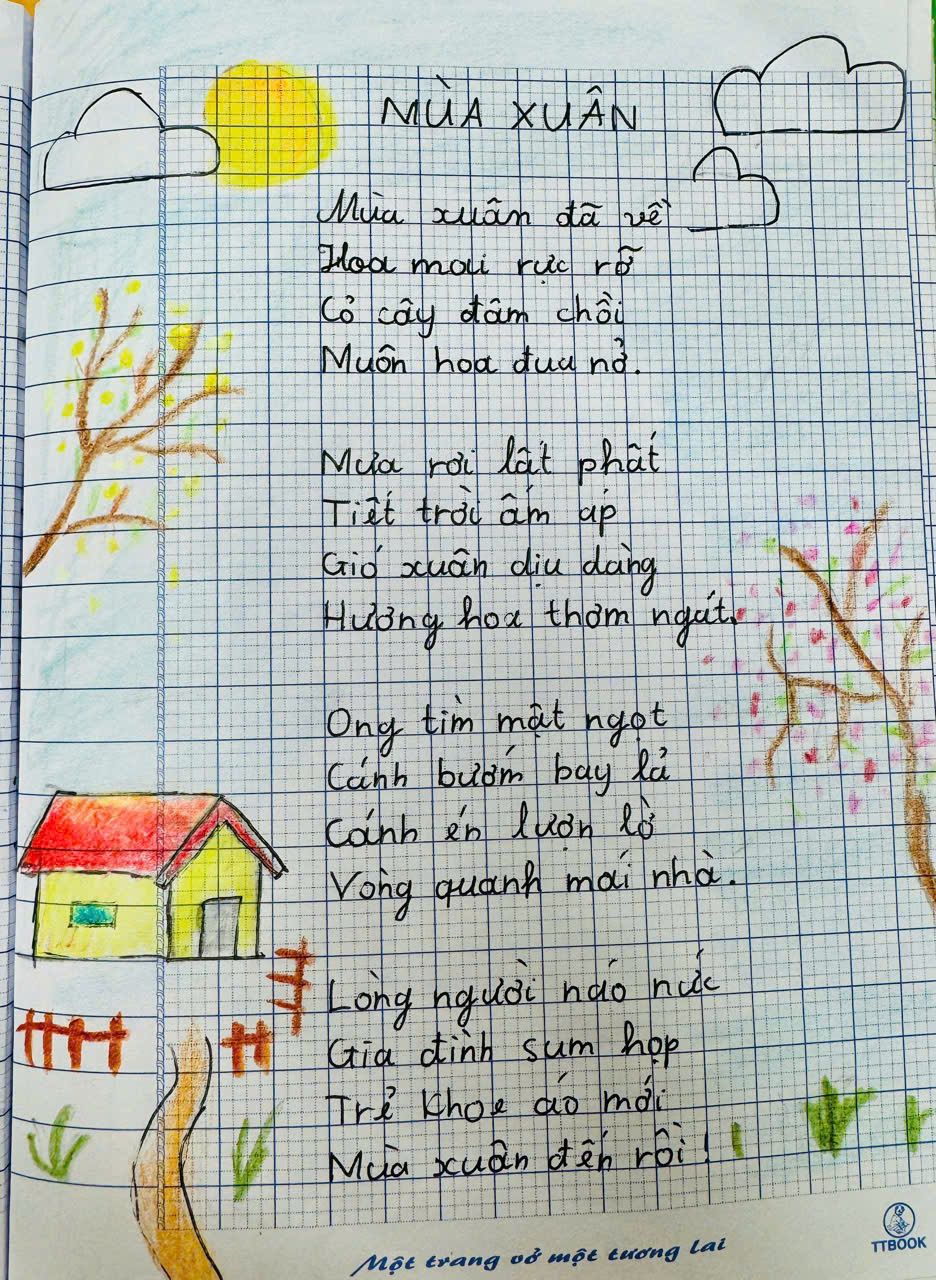 MÙA XUÂN
Mùa xuân đã về
Hoa mai rực rỡ
Cỏ cây đâm chồi
Muôn hoa đua nở.
Mưa rơi lất phất
Tiết trời ấm áp
Gió xuân dịu dàng
Hương hoa thơm ngát.
Ong tìm mật ngọt
Cánh bướm bay lả
Cánh én lượn lờ
Vòng quanh mái nhà.
Lòng người náo nức
Gia đình sum họp
Trẻ khoe áo mới
Mùa xuân đến rồi!
Một trang vở một tương lai
TTBOOK